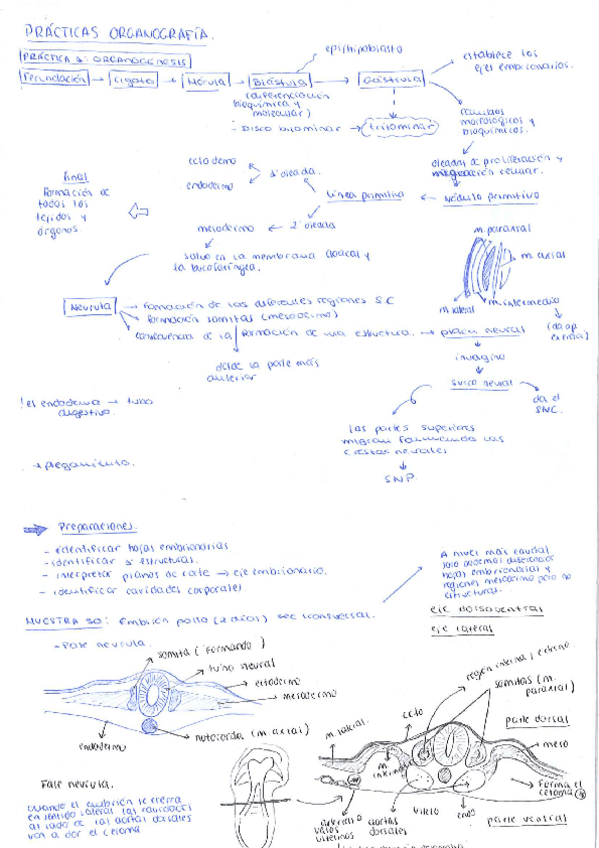 PRÁCTICAS ORGANOGRAFÍA.
PRÁCTICA 1: ORGANOGÉNESIS
epi/hipoblasto
establece los
ejes embrionarios.
Fecundación → Cigoto → Mórula → Blástula → Gástrula
(diferenciación
bioquímica y
molecular)
- Disco bilaminar → trilaminar
cambios
morfológicos y
bioquímicos.
oleadas de proliferación y
migración celular.
nódulo primitivo
línea primitiva
1ª oleada.
ectodermo
endodermo
2ª oleada
mesodermo
salvo en la membrana cloacal y
la bucofaríngea.
final
formación de
todos los
tejidos y
órganos.
m. paraxial
m. axial
m. lateral
m. intermedio
Neurula
→ formación de las diferentes regiones S.C
→ formación somitas (mesodermo)
→ consecuencia de la formación de una estructura. → placa neural
desde la parte más
anterior
invagina
surco neural
da el
SNC.
las partes superiores
migran formando las
crestas neurales
SNP.
el endodermo → tubo
digestivo.
→ plegamiento.
Preparaciones.
- identificar hojas embrionarias
- identificar estructuras.
- interpretar planos de corte → eje embrionario.
- identificar cavidades corporales
A nivel más caudal
solo podemos diferenciar
hojas embrionarias y
regiones mesodermo pero no
estructuras.
MUESTRA 30: Embrión pollo (2 días) sec transversal.
eje dorsoventral
eje lateral
- Fase neurula.
somita (formando)
tubo neural
ectodermo
mesodermo
notocorda (m axial)
endodermo
región interna / externa
somitas (m.
paraxial)
ecto
parte dorsal
m lateral.
m
intermedio
meso
forma el
celoma
aortas
dorsales
endo
parte ventral
Fase neurula.
cuando el embrión se cierra
en sentido lateral las cavidades
al lado de las aortas dorsales
van a dar el celoma